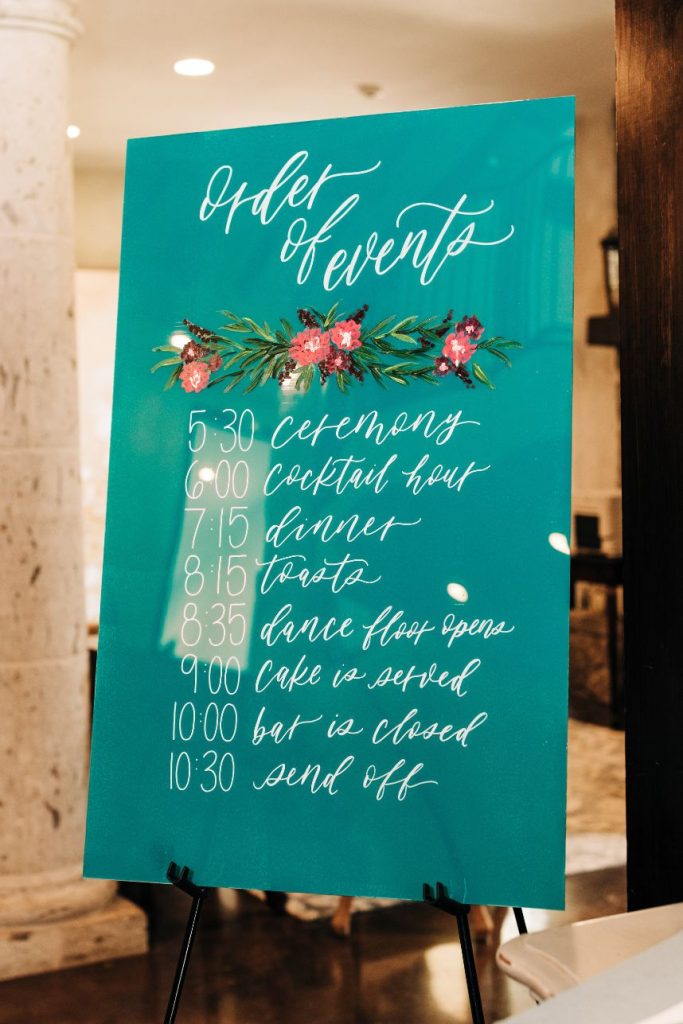 order
of events
5:30 ceremony
6:00 cocktail hour
7:15 dinner
8:15 toasts
8:35 dance floor opens
9:00 cake is served
10:00 bar is closed
10:30 send off